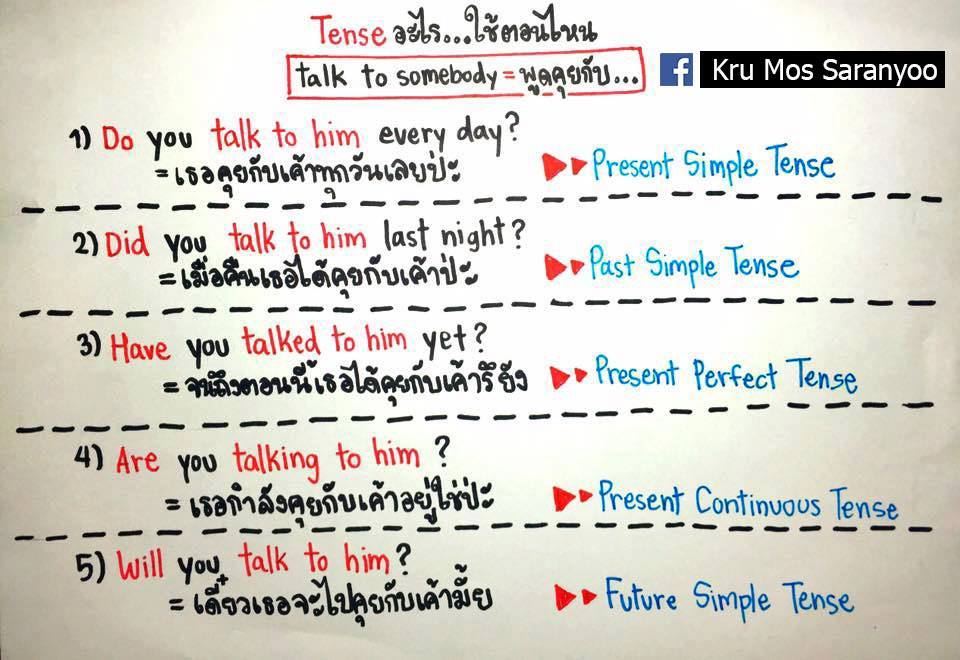 Tense อะไร...ใช้ตอนไหน
talk to somebody = พูดคุยกับ...
Kru Mos Saranyoo
1) Do you talk to him every day?
= เธอคุยกับเค้าทุกวันเลยป่ะ
Present Simple Tense
2) Did you talk to him last night?
= เมื่อคืนเธอได้คุยกับเค้าป่ะ
Past Simple Tense
3) Have you talked to him yet?
= จนถึงตอนนี้เธอได้คุยกับเค้ารึยัง
Present Perfect Tense
4) Are you talking to him?
= เธอกำลังคุยกับเค้าอยู่ใช่ป่ะ
Present Continuous Tense
5) Will you talk to him?
= เดี๋ยวเธอจะไปคุยกับเค้ามั้ย
Future Simple Tense